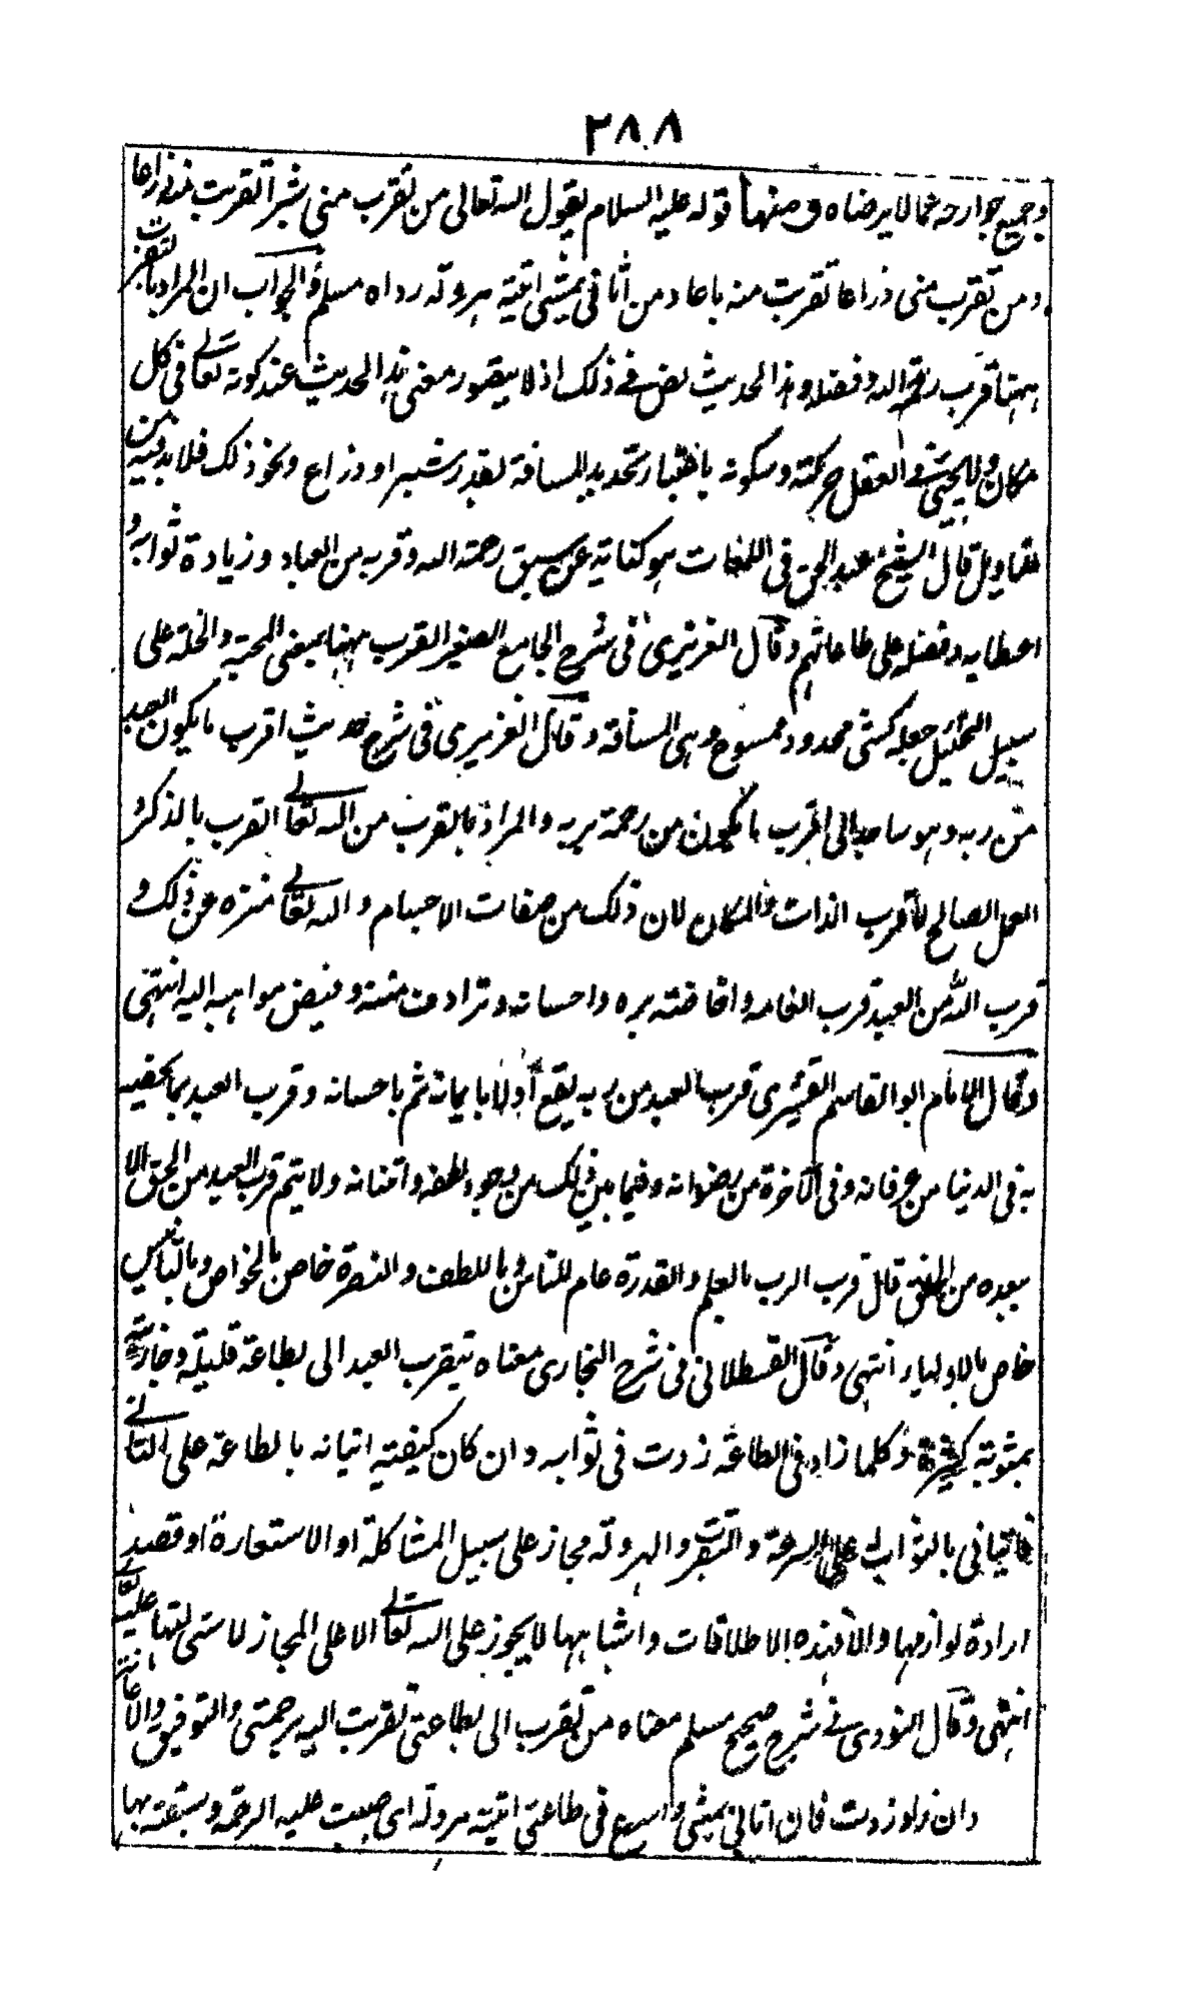 ٢٨٨
وجميع جوارحه عما لا يرضاه ومنها قوله عليه السلام يقول الله تعالى من تقرب منى شبرا تقربت منه ذراعا
ومن تقرب منى ذراعا تقربت منه باعا ومن أتانى يمشى اتيته هرولة رواه مسلم والجواب ان المراد بالتقرب
ههنا قرب رحمة الله وفضله وهذا الحديث نص فى ذلك اذ لا يتصور معنى هذا الحديث عند كونه تعالى فى كل
مكان ولا يجئ فى العقل حركته وسكونه باعتبار تحديد المسافة بقدر شبر او ذراع ونحو ذلك فلا بد فيه من
التاويل قال الشيخ عبد الحق فى اللمعات هو كناية عن سبق رحمة الله وقربه من العباد وزيادة ثوابه و
اعطايه وفضله على طاعاتهم وقال العزيزى فى شرح الجامع الصغير القرب ههنا بمعنى المحبة والخلة على
سبيل التمثيل جعله كشئ محدود ممسوح وهى المسافة وقال العزيزى فى شرح حديث اقرب ما يكون العبد
من ربه وهو ساجد اى اقرب ما يكون من رحمة ربه والمراد بالقرب من الله تعالى القرب بالذكر و
العمل الصالح لا قرب الذات والمكان لان ذلك من صفات الاجسام والله تعالى منزه عن ذلك و
قرب الله من العبد قرب انعامه وافاضته بره واحسانه وترادف مننه وفيض مواهبه اليه انتهى
وقال الامام ابو القاسم القشيرى قرب العبد من ربه يقع أولا بايمانه ثم باحسانه وقرب العبد بما يخصه
به فى الدنيا من عرفانه وفى الآخرة من رضوانه وفيما بين ذلك من وجوه لطفه وامتنانه ولا يتم قرب العبد من الحق الا
ببعده من الخلق قال قرب الرب بالعلم والقدرة عام للناس وباللطف والنصرة خاص بالخواص وبالتانيس
خاص بالاولياء انتهى وقال القسطلانى فى شرح البخارى معناه تيقرب العبد الى بطاعة قليلة وجازيته
بمثوبة كثيرة وكلما زاد فى الطاعة زدت فى ثوابه وان كان كيفية اتيانه بالطاعة على التانى
فاتيانى بالثواب له على السرعة والتقرب والهرولة مجاز على سبيل المشاكلة او الاستعارة او قصد
ارادة لوازمها والا فهذه الاطلاقات واشباهها لا يجوز على الله تعالى الا على المجاز لاستحالتها عليه تعالى
انتهى وقال النووى فى شرح صحيح مسلم معناه من تقرب الى بطاعتى تقربت اليه برحمتى والتوفيق والاعانة
وان زاد زدت فان اتانى يمشى واسرع فى طاعتى اتيته هرولة اى صببت عليه الرحمة وسبقته بها